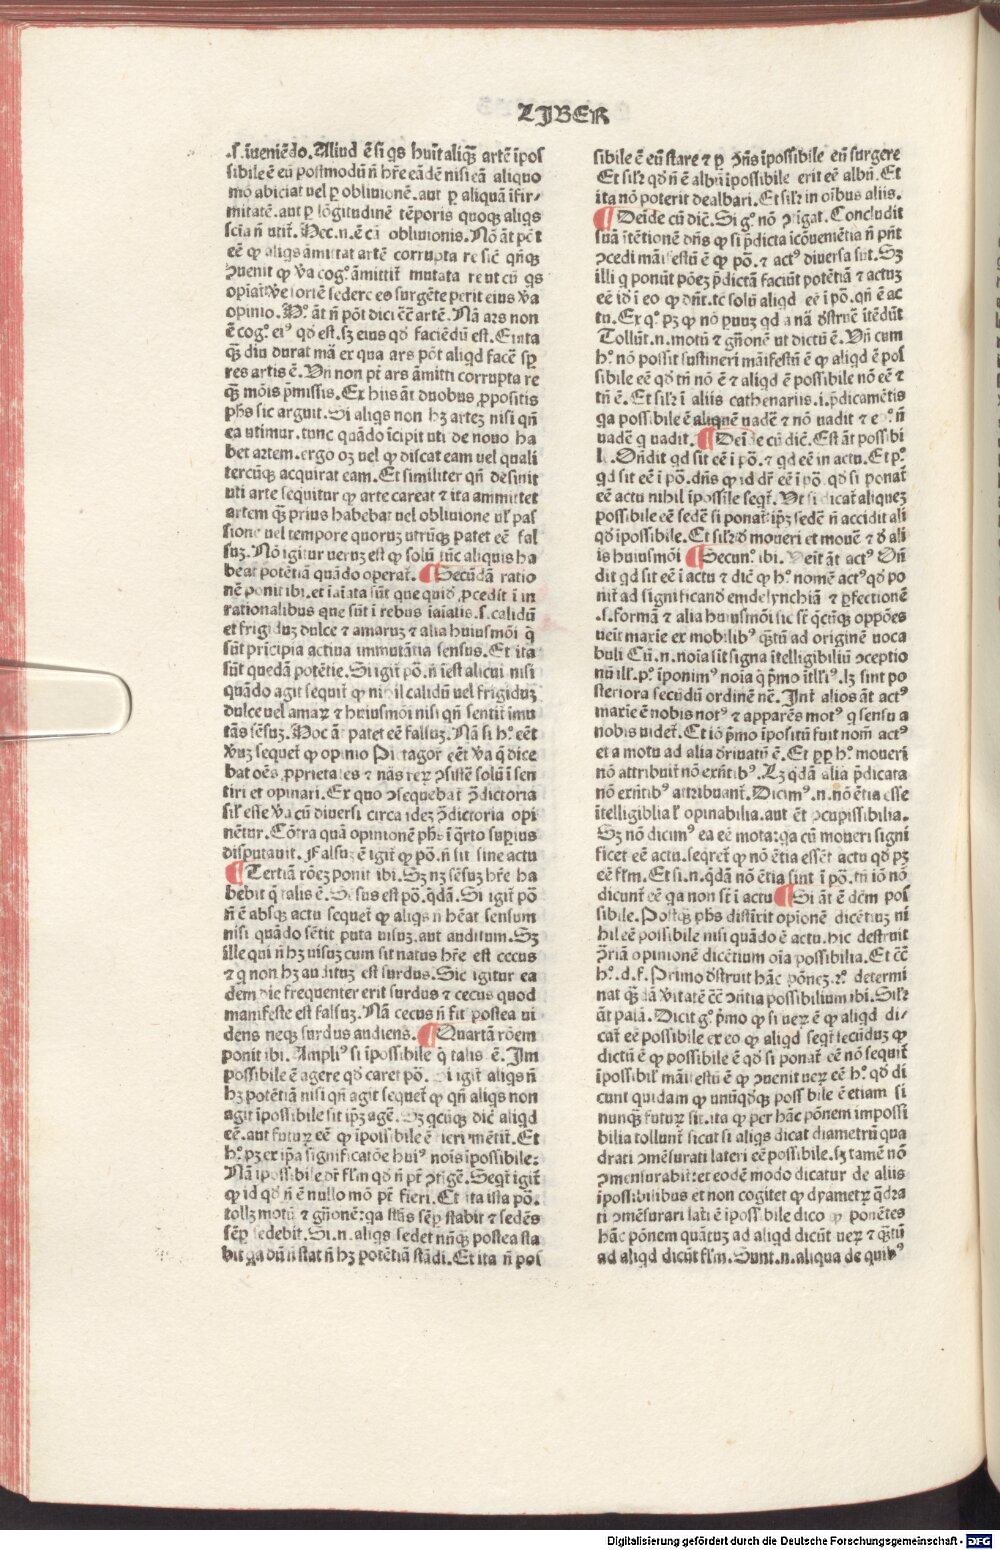 LIBER
.s. īveniēdo. Aliud ē si qs huīt aliqꝫ artē īpos
sibile ē eū postmodū n̄ hr̄e eādē nisi eā aliquo
mō abiciat uel ꝑ obliuionē. aut ꝑ aliquā īfir-
mitatē. aut ꝑ lōgitudinē tēporis quoqꝫ aliqs
scīa n̄ utit̄. Hec .n. ē cā obliuionis. Nō āt pōt
eē ꝙ aliqs āmittat artē corrupta re sic̄ qn̄qꝫ
ꝯuenit ꝙ v̄a cog̊. āmittit̄ mutata re ut cū qs
opinio. H̊. āt n̄ pōt dici ēē artē. Nā ars non
ē cog̊. eiꝰ qd est. sꝫ eius qd faciēdū est. E iuta
qꝫ diu durat mā ex qua ars pōt aliqd facē sp̄
res artis ē. Vn̄ non pt̄ ars āmitti corrupta re
qꝫ mōis p̄missis. Ex hiis āt duobus ꝓpositis
ph̄s sic arguit. Si aliqs non hꝫ artez nisi qn̄
ea utimur. tunc quādo īcipit uti de nouo ha
bet artem. ergo oꝫ uel ꝙ discat eam uel quali
tercūqꝫ acquirat eam. Et similiter qn̄ desinit
uti arte sequitur ꝙ arte careat ⁊ ita ammittet
artem qꝫ prius habebat uel obliuione ul̄ pas
sione uel tempore quoruꝫ utrūqꝫ patet eē fal
suꝫ. Nō igitur ueruꝫ est ꝙ solū tūc aliquis ha
beat potētiā quādo operat̄. ¶ Secūdā ratio
nē ponit ibi. et īaīata sūt que quid̄ ꝓcedit ī in
rationalibus que sūt ī rebus īaīatis .s. calidū
et frigiduꝫ dulce ⁊ amaruꝫ ⁊ alia huiusmōi q̄
sūt prīcipia actiua immutātia sensus. Et ita
sūt quedā potētie. Si igit̄ pō. n̄ īest alicui nisi
quādo agit sequit̄ ꝙ nihil calidū uel frigiduꝫ
dulce uel amaꝝ ⁊ huiusmōi nisi qn̄ sentit̄ īmu
tās sēsuꝫ. Hoc āt patet eē falsuꝫ. Nā si h̊. eēt
v̄uꝫ sequet̄ ꝙ opinio Pitagor eēt v̄a q̄ dice
bat oēs ꝓprietates ⁊ nās reꝝ ꝯsistē solū ī sen
tiri et opinari. Ex quo ꝯsequebat̄ ꝯ̄dictoria
sil̄ esse v̄a cū diuersi circa ideꝫ ꝯ̄dictoria opi
nētur. Cōtra quā opinionē ph̄s ī q̄rto suꝑius
disputauit. Falsuꝫ ē igit̄ ꝙ pō. n̄ sit sine actu
¶ Tertiā rōeꝫ ponit ibi. Sꝫ nꝫ sēsuꝫ hr̄e ha
bebit q̄ talis ē. Sēsus est pō. q̄dā. Si igit̄ pō
n̄ ē absqꝫ actu sequet̄ ꝙ aliqs n̄ hēat sensum
nisi quādo sētit puta uisuꝫ. aut auditum. Sꝫ
ille qui n̄ hꝫ uisuꝫ cum sit natus hr̄e est cecus
⁊ q̄ non hꝫ audituꝫ est surdus. Sic igitur ea
dem die frequenter erit surdus ⁊ cecus quod
manifeste est falsuꝫ. Nā cecus n̄ fit postea ui
dens neqꝫ surdus audiens. ¶ Quartā rōem
ponit ibi. Ampliꝰ si īpossibile q̄ talis ē. Im
possibile ē agere qd̄ caret pō. Si igit̄ aliqs n̄
hꝫ potētiā nisi qn̄ agit sequet̄ ꝙ qn̄ aliqs non
agit īpossibile sit ipꝫ agē. Sꝫ qcūqꝫ dic̄ aliqd
eē. aut futuꝝ eē ꝙ īpossibile ē fieri mētit̄. Et
h̊. pꝫ ex ip̄a significatōe huiꝰ nois īpossibile:
Nā īpossibile dr̄ fl̄m qd̄ n̄ pt̄ ꝯtīgē. Seqt̄ igit̄
ꝙ id qd̄ n̄ ē nullo mō pt̄ fieri. Et ita ista pō.
tollꝫ motū ⁊ gn̄onē: qa stās sēꝑ stabit ⁊ sedēs
sēꝑ sedebit. Si .n. aliqs sedet nūqꝫ postea sta
bit qa dū n̄ stat n̄ hꝫ potētiā stādi. Et ita n̄ pos
sibile ē eū stare ⁊ ꝑ ꝯn̄s īpossibile eū surgere
Et sil̄r qd̄ n̄ ē albū īpossibile erit eē albū. Et
ita nō poterit dealbari. Et sil̄r in oībus aliis.
¶ Deīde cū dic̄. Si g̊. nō ꝯtigat. Concludit
suā ītētionē dn̄s ꝙ si p̄dicta īcōueniētia n̄ pn̄t
ꝯcedi māifestū ē ꝙ pō. ⁊ actꝰ diuersa sūt. Sꝫ
illi q ponūt pōeꝫ p̄dictā faciūt potētiā ⁊ actuꝫ
eē id ī eo ꝙ dn̄t. tc̄ solū aliqd eē ī pō. qn̄ ē ac
tu. Ex q̊. pꝫ ꝙ nō puuꝫ qd a nā dstruē ītēdūt
Tollūt .n. motū ⁊ gn̄onē ut dictū ē. Vn̄ cum
h̊. nō possit sustineri māifestū ē ꝙ aliqd ē pos
sibile eē qd̄ tn̄ nō ē ⁊ aliqd ē possibile nō eē ⁊
tn̄ ē. Et sil̄r ī aliis cathenariis .i. p̄dicamētis
qa possibile ē aliquē uadē ⁊ nō uadit ⁊ e . n̄
uadē q uadit. ¶ Deīde cū dic̄. Est āt possibi
l. Ondit qd sit eē ī pō. ⁊ qd eē in actu. Et p̊.
qd sit eē ī pō. dn̄s ꝙ id dr̄ eē ī pō. qd̄ si ponat̄
eē actu nihil īpossile seqt̄. Vt si dicat̄ aliqueꝫ
possibile eē sedē si ponat̄ ipꝫ sedē n̄ accidit ali
qd̄ īpossibile. Et sil̄r d̄ moueri et mouē ⁊ d̄ ali
is huiusmōi ¶ Secun̊. ibi. Veīt āt actꝰ On̄
dit qd sit eē ī actu ⁊ dic̄ ꝙ h̊. nomē actꝰ qd̄ po
nit̄ ad significand̄ endelynchiā ⁊ ꝑfectionē
.s. formā ⁊ alia huiusmōi sic st̄ q̄cūqꝫ oppōes
ueīt maxie ex mobilibꝰ qꝫtū ad originē uoca
buli Cū .n. noīa sīt signa ītelligibiliū ꝯceptio
nū ill̄. p̊. īponimꝰ noīa q̄ p̄mo ītllꝰ. lꝫ sint po
steriora secūdū ordinē nē. Int̄ alios āt actꝰ
maxie ē nobis notꝰ ⁊ apparēs motꝰ q sensu a
nobis uidet̄. Et iō p̄mo īpositū fuit nom̄ actꝰ
et a motu ad alia d̄riuatū ē. Et ꝓꝑ h̊. moueri
nō attribuit̄ nō exn̄tibꝰ. Lꝫ q̄dā alia p̄dicata
nō exn̄tibꝰ attribuant̄. Dicimꝰ .n. nō ētia esse
ītelligiblia l̄ opinabilia. aut ēt ꝯcupissibilia.
Sꝫ nō dicimꝰ ea eē mota: qa cū moueri signi
ficet eē actu. seqret̄ ꝙ nō ētia essēt actu qd̄ pꝫ
eē fl̄m. Et si .n. q̄dā nō ētia sint ī pō. tn̄ iō nō
dicunt̄ eē qa non st̄ ī actu ¶ Si āt ē dc̄m pos
sibile. Postqꝫ ph̄s distīxit opionē dicētiuꝫ ni
hil eē possibile nisi quādo ē actu. hic destruit
ꝯ̄riā opinionē dicētium oīa possibilia. Et c̄c̄
h̊. d. f. Primo dstruit hāc pōneꝫ. 2̊. determi
nat qꝫdā v̄itatē c̄c̄ ꝯn̄tia possibilium ibi. Sil̄r
āt palā. Dicit g̊. p̄mo ꝙ si ueꝝ ē ꝙ aliqd di-
cat̄ eē possibile ex eo ꝙ aliqd seqt̄ secūduꝫ ꝙ
dictū ē ꝙ possibile ē qd̄ si ponat̄ eē nō sequit̄
īpossibil̄ māifestū ē ꝙ ꝯuenit ueꝝ eē h̊. qd̄ di
cunt quidam ꝙ unūqd̄qꝫ possibile ē etiam si
nunqꝫ futuꝝ sit. ita ꝙ per hāc pōnem impossi
bilia tollunt̄ sicut si aliqs dicat diametrū qua
drati ꝯmēsurati lateri eē possibile. sꝫ tamē nō
ꝯmensurabit̄: et eodē modo dicatur de aliis
īpossibilibus et non cogitet ꝙ dyametꝝ q̄dra
ti ꝯmēsurari lati ē īpossibile dico ꝙ ponētes
hāc pōnem quātuꝫ ad aliqd dicūt ueꝝ ⁊ qꝫtū
ad aliqd dicūt fl̄m. Sunt .n. aliqua de quibꝰ
Digitalisierung gefördert durch die Deutsche Forschungsgemeinschaft - DFG